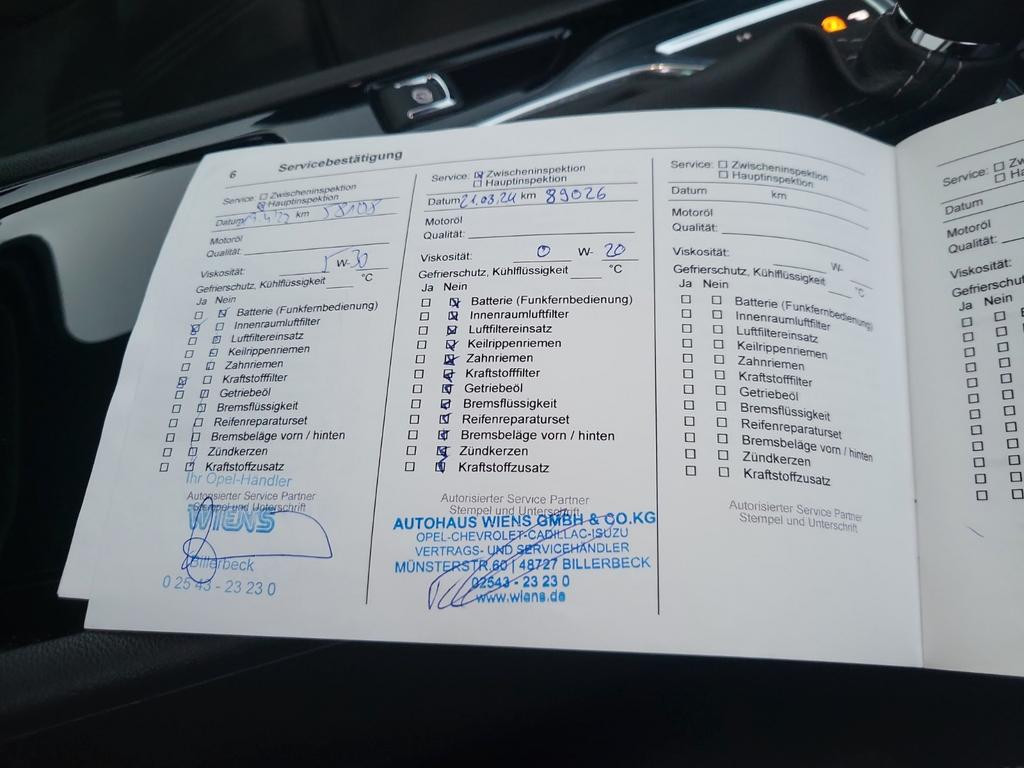 6 Servicebestätigung
Service: Zwischeninspektion
Hauptinspektion
Datum km 58108
Motoröl
Qualität:
Viskosität: 5 W-30
Gefrierschutz, Kühlflüssigkeit °C
Ja Nein
Batterie (Funkfernbedienung)
Innenraumluftfilter
Luftfiltereinsatz
Keilrippenriemen
Zahnriemen
Kraftstofffilter
Getriebeöl
Bremsflüssigkeit
Reifenreparaturset
Bremsbeläge vorn / hinten
Zündkerzen
Kraftstoffzusatz
Ihr Opel-Händler
Autorisierter Service Partner
Stempel und Unterschrift
WIENS
Billerbeck
0 25 43 - 23 23 0
Service: Zwischeninspektion
Hauptinspektion
Datum 21.03.24 km 89026
Motoröl
Qualität:
Viskosität: 0 W- 20
Gefrierschutz, Kühlflüssigkeit °C
Ja Nein
Batterie (Funkfernbedienung)
Innenraumluftfilter
Luftfiltereinsatz
Keilrippenriemen
Zahnriemen
Kraftstofffilter
Getriebeöl
Bremsflüssigkeit
Reifenreparaturset
Bremsbeläge vorn / hinten
Zündkerzen
Kraftstoffzusatz
Autorisierter Service Partner
Stempel und Unterschrift
AUTOHAUS WIENS GMBH & CO.KG
OPEL-CHEVROLET-CADILLAC-ISUZU
VERTRAGS- UND SERVICEHÄNDLER
MÜNSTERSTR.60 | 48727 BILLERBECK
02543 - 23 23 0
www.wiens.de
Service: Zwischeninspektion
Hauptinspektion
Datum km
Motoröl
Qualität:
Viskosität: W-
Gefrierschutz, Kühlflüssigkeit °C
Ja Nein
Batterie (Funkfernbedienung)
Innenraumluftfilter
Luftfiltereinsatz
Keilrippenriemen
Zahnriemen
Kraftstofffilter
Getriebeöl
Bremsflüssigkeit
Reifenreparaturset
Bremsbeläge vorn / hinten
Zündkerzen
Kraftstoffzusatz
Autorisierter Service Partner
Stempel und Unterschrift
Service:
Datum
Motoröl
Qualität:
Viskosität:
Ja Nein